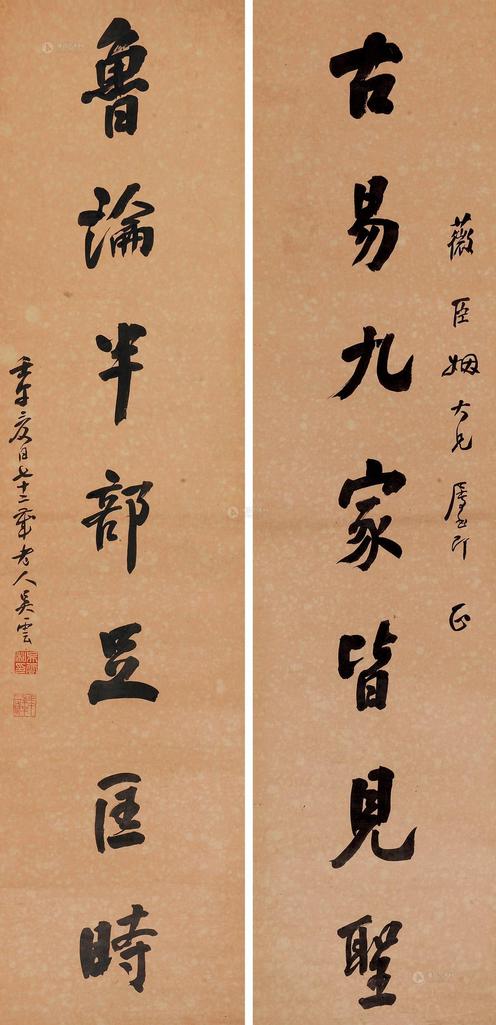 薇臣姻大兄属書即正
古易九家皆見聖
魯論半部足匡時
壬午夏日七十二歲老人吳雲